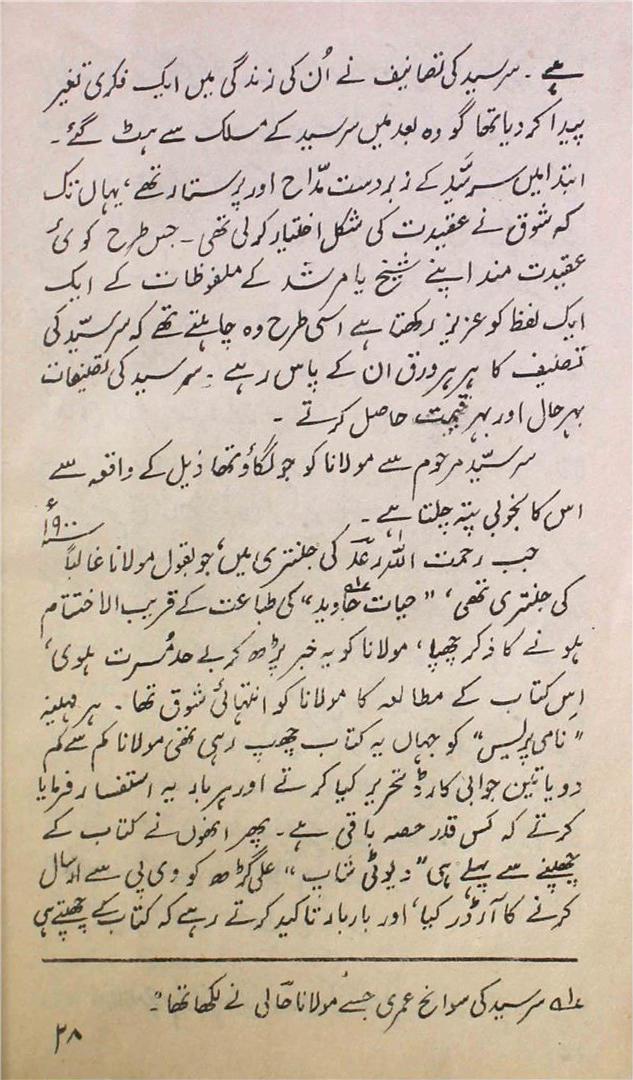 ہے ۔ سرسید کی تصانیف نے اُن کی زندگی میں ایک فکری تغیر
پیدا کر دیا تھا گو وہ بعد میں سرسید کے مسلک سے ہٹ گئے ۔
ابتدا میں سرسیّد کے زبردست مدّاح اور پرستار تھے ، یہاں تک
کہ شوق نے عقیدت کی شکل اختیار کر لی تھی ۔ جس طرح کوئ
عقیدت مند اپنے شیخ یا مرشد کے ملفوظات کے ایک
ایک لفظ کو عزیز رکھتا ہے اسی طرح وہ چاہتے تھے کہ سرسیّد کی
تصنیف کا ہر ہر ورق ان کے پاس رہے ۔ سرسید کی تصنیفات
بہر حال اور بہر قیمت حاصل کرتے ۔
سرسیّد مرحوم سے مولانا کو جو لگاؤ تھا ذیل کے واقعہ سے
اس کا بخوبی پتہ چلتا ہے ۔
جب رحمت اللہ رعد کی جنتری میں، جو بقول مولانا غالباً ۱۹۰۰ء
کی جنتری تھی ، "حیات جاوید" کی طباعت کے قریب الاختتام
ہونے کا ذکر چھپا ، مولانا کو یہ خبر پڑھ کر بے حد مُسرت ہوی ،
اِس کتاب کے مطالعہ کا مولانا کو انتہائی شوق تھا ۔ ہر مہینہ
"نامی پریس" کو جہاں یہ کتاب چھپ رہی تھی مولانا کم سے کم
دو یا تین جوابی کارڈ تحریر کیا کرتے اور ہر بار یہ استفسار فرمایا
کرتے کہ کس قدر حصہ باقی ہے ۔ پھر انھوں نے کتاب کے
چھپنے سے پہلے ہی "ڈیوٹی شاپ" علی گڑھ کو وی پی سے ارسال
کرنے کا آرڈر کیا ، اور بار بار تاکید کرتے رہے کہ کتاب کے چھپتے ہی
؎۱ سرسید کی سوانح عمری جسے مولانا حالی نے لکھا تھا ۔
۲۸